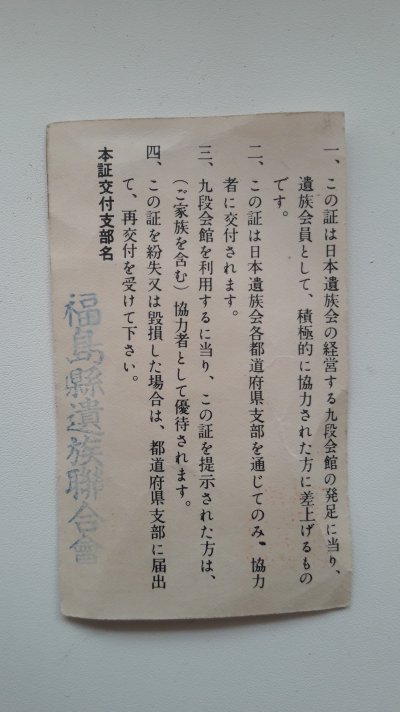 一、この証は日本遺族会の経営する九段会館の発足に当り、
遺族会員として、積極的に協力された方に差上げるもの
です。
二、この証は日本遺族会各都道府県支部を通じてのみ、協力
者に交付されます。
三、九段会館を利用するに当り、この証を提示された方は、
(ご家族を含む)協力者として優待されます。
四、この証を紛失又は毀損した場合は、都道府県支部に届出
て、再交付を受けて下さい。
本証交付支部名
福島縣遺族聯合會